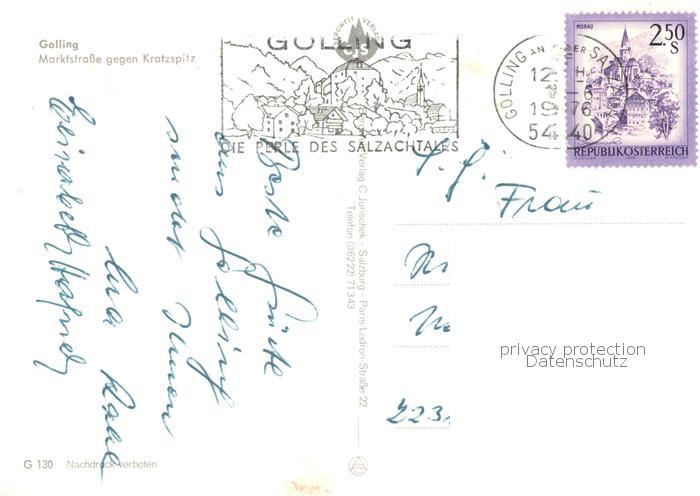 Golling
Marktstraße gegen Kratzspitz
GOLLING
DIE PERLE DES SALZACHTALES
GOLLING AN DER SAL
12
-6
1976
5440
MURAU
2.50
S
REPUBLIK ÖSTERREICH
Beste Grüße
aus Golling
sendet Ihnen
Frau
223
privacy protection
Datenschutz
Verlag C. Jurischek - Salzburg - Paris-Lodron-Straße 22
Telefon (06222) 71343
G 130 Nachdruck verboten